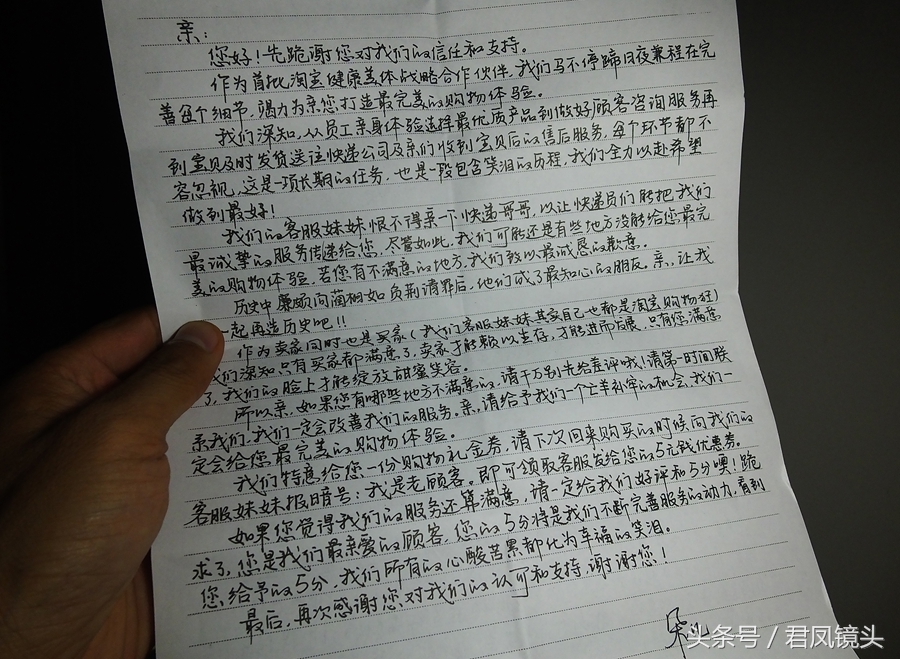 亲:
您好!先跪谢您对我们的信任和支持。
作为首批淘宝健康美体战略合作伙伴,我们马不停蹄日夜兼程在完
善每个细节,竭力为亲您打造最完美的购物体验。
我们深知,从员工亲身体验选择最优质产品到做好顾客咨询服务再
到宝贝及时发货送往快递公司及亲们收到宝贝后的售后服务,每个环节都不
容忽视,这是一项长期的任务,也是一段包含笑泪的历程,我们全力以赴希望
做到最好!
我们的客服妹妹恨不得亲一下快递哥哥,以让快递员们能把我们
最诚挚的服务传递给您,尽管如此,我们可能还是有些地方没能给您最完
美的购物体验,若您有不满意的地方,我们致以最诚恳的歉意。
历史中廉颇向蔺相如负荆请罪后,他们成了最知心的朋友,亲,让我
一起再造历史吧!!
作为卖家同时也是买家(我们客服妹妹其实自己也都是淘宝购物狂)
我们深知只有买家都满意了,卖家才能赖以生存,才能进而发展,只有您满意
了,我们的脸上才能绽放甜蜜笑容。
所以亲,如果您有哪些地方不满意的,请千万别先给差评哦!请第一时间联
系我们,我们一定会改善我们的服务。亲,请给予我们一个亡羊补牢的机会,我们一
定会给您最完美的购物体验。
我们特意给您一份购物礼金券,请下次回来购买的时候向我们的
客服妹妹报暗号:我是老顾客。即可领取客服发给您的5元钱优惠券。
如果您觉得我们的服务还算满意,请一定给我们好评和5分噢!跪
求了,您是我们最亲爱的顾客,您的5分将是我们不断完善服务的动力,看到
您给予的5分,我们所有的心酸苦累都化为幸福的笑泪。
最后,再次感谢您对我们的认可和支持,谢谢您!
头条号 / 君凤镜头